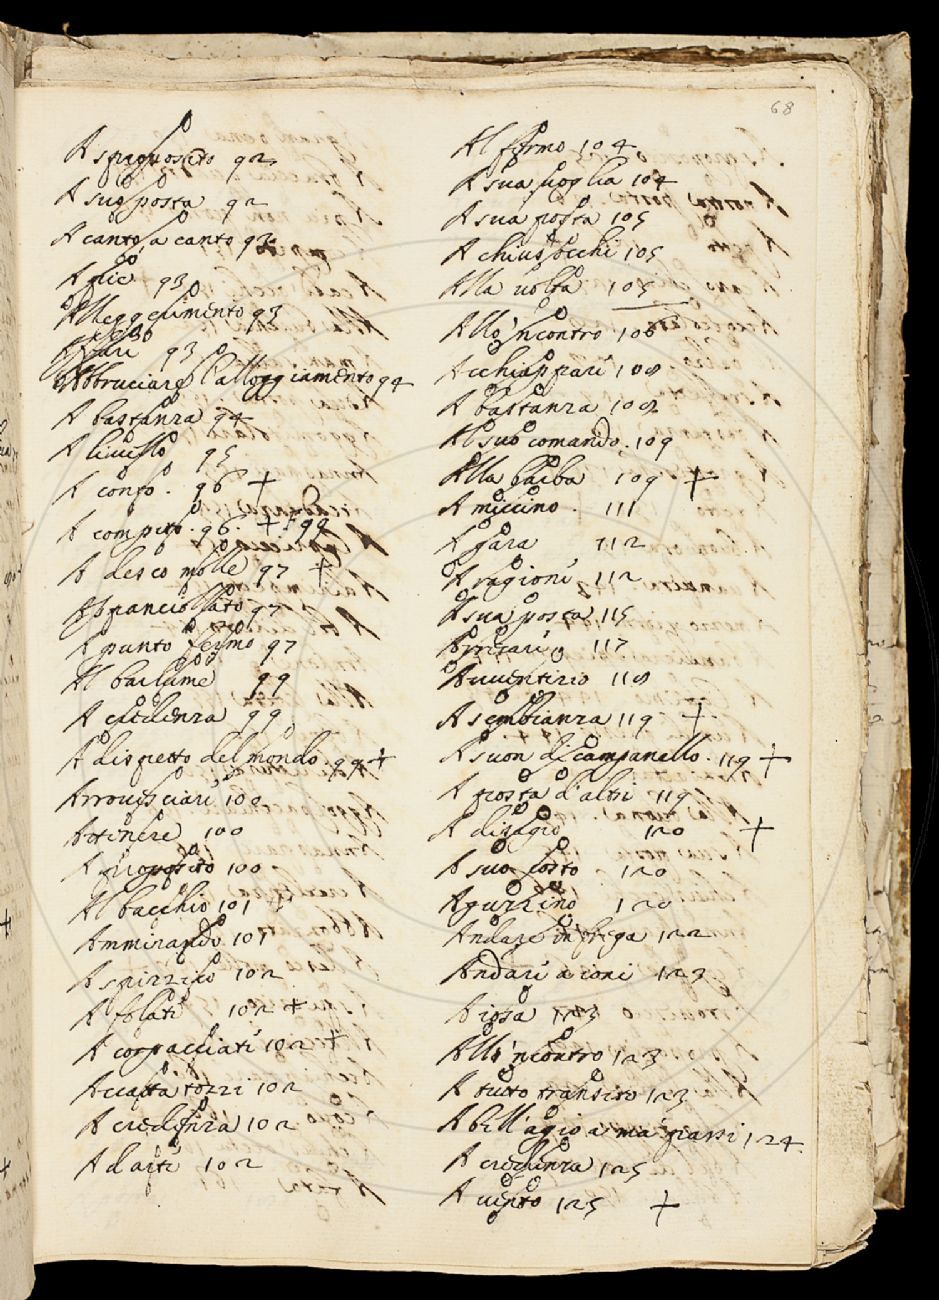 68
A sproposito 92
A suo posta 92
A canto a canto 93
A pie 93
Alleggerimento 93
93
Abbruciare l'alloggiamento 94
A bastanza 94
A livello 95
A conto. 96 +
A compito. 96. + + 99
A desco molle 97 +
Abranciollato 97
A punto fermo 97
Al barlume 99
A credenza 99
A dispetto del mondo. 99 +
Arrovesciare 100
Attenere 100
A proposito 100
Al bacchio 101
Ammirando 101
A spizzico 102
A folate 102 +
A corpacciate 102 +
Accatta tozzi 102
A credenza 102
A d'arte 102
Al fermo 104
A sua voglia 104
A sua posta 105
A chius'occhi 105
Alla volta 105
All'incontro 106
Acchiappare 108
A bastanza 108
Al suo comando. 109
Alla barba 109. +
A miccino. 111
A gara 112
A ragione 112
A sua posta 115
Arrivare 117
Avventizio 118
A sembianza 119 +
A suon di campanello. 119 +
A posta d'altri 119
A disagio 120 +
A suo costo 120
Aguzzino 120
Andare in frega 122
Andare a ioni 123
A iosa 123
All'incontro 123
A tutto transito 123
A bell'agio a ma' passi 124.
A credenza 125
A vento 125 +